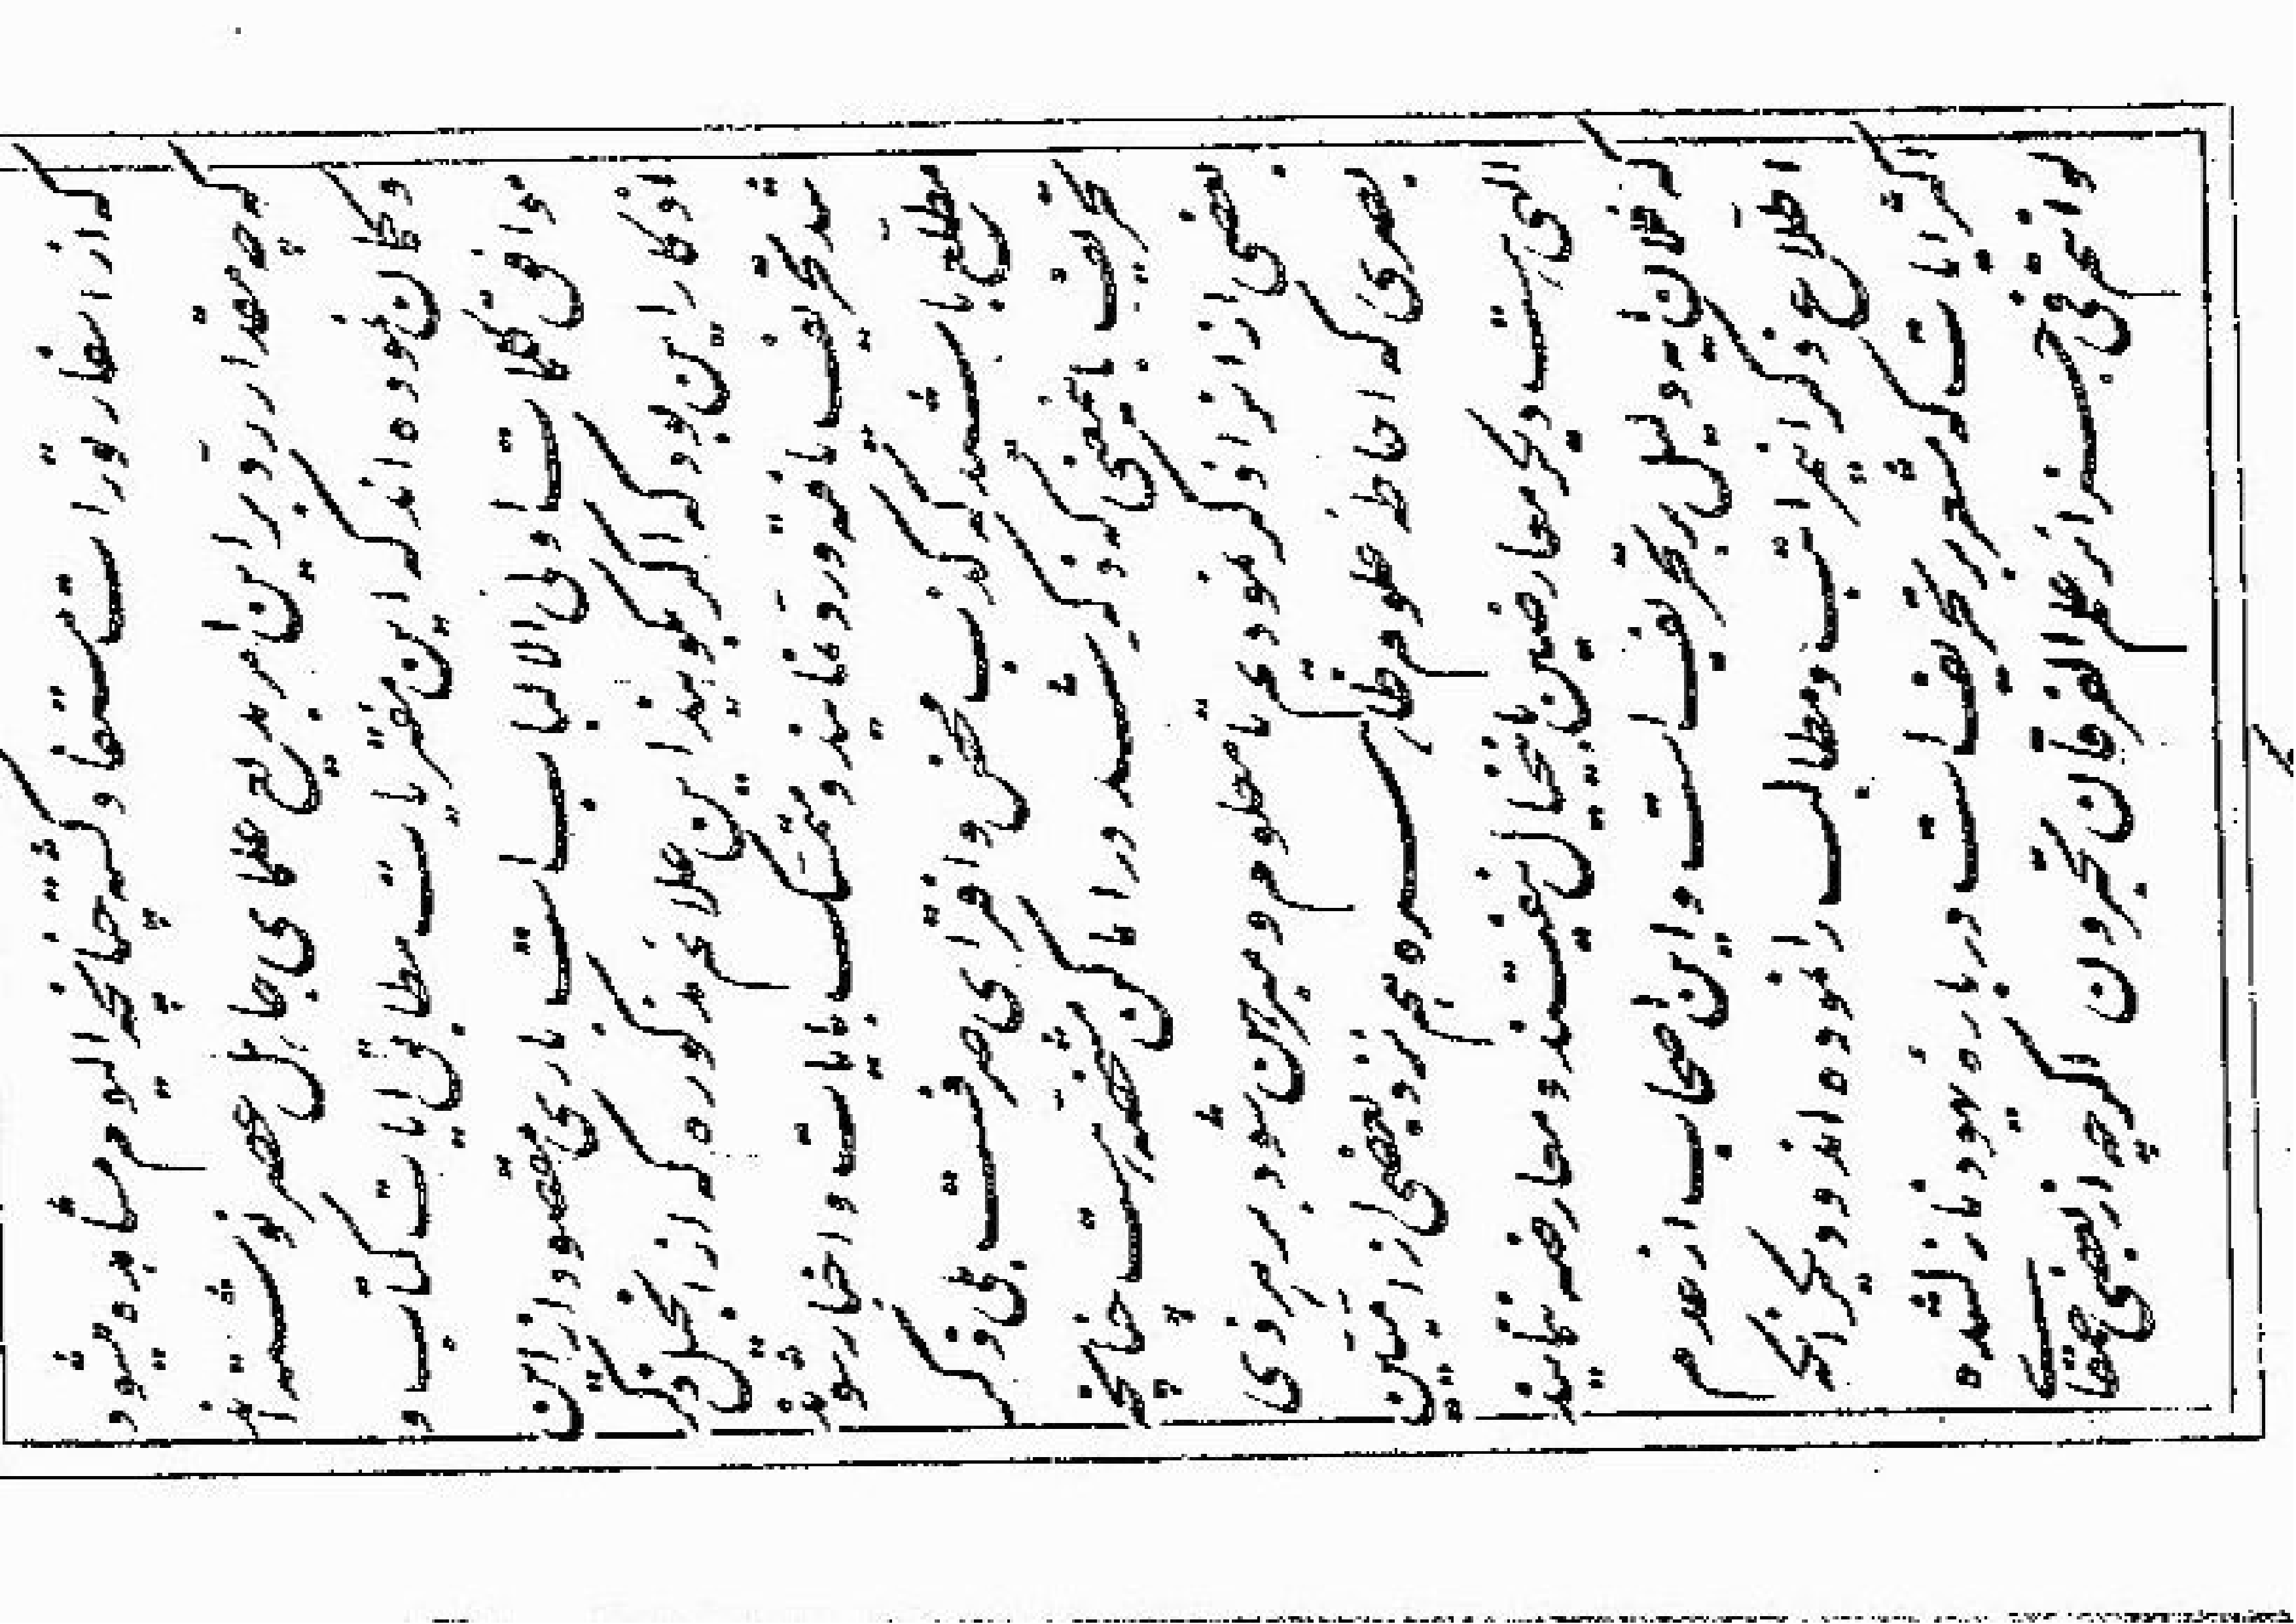 که از اسفار تورات مستفاد چنانچه الیوم مشاهده میشود و
چه مقدار رد بر این امر بدیع علمای جاهل عصر نوشته‌اند
و گمان نموده‌اند که این مفتریات مطابق آیات کتاب و
موافق کلمات اولی الالباب است باری مقصود از این
اذکار این بود که اگر بگویند این علائم مذکوره که از انجیل ذکر
شد تحریف یافته و رد نمایند و متمسک بآیات و اخبار شوند
مطلع باشید که کذب محض و افترای صرف است بلی ذکر
تحریف باین معنی که ذکر شد در اماکن مشخصه هست چنانچه
بعضی از آنرا ذکر نمودیم تا معلوم و مبرهن شود بر هر ذی
بصری که احاطه علوم ظاهره هم نزد بعضی از امیین
الهی هست دیگر معارضین باین خیال نیفتند و معارضه نمایند
که فلان آیه دلیل بر تحریف است و این اصحاب از عدم
اطلاع ذکر این مراتب و مطالب را نموده‌اند و دیگر آنکه
اکثر آیات که مشعر بر تحریف است درباره یهود نازل شده
لو انتم فی جزائر علم الفرقان تحبرون اگرچه از بعضی حمقای